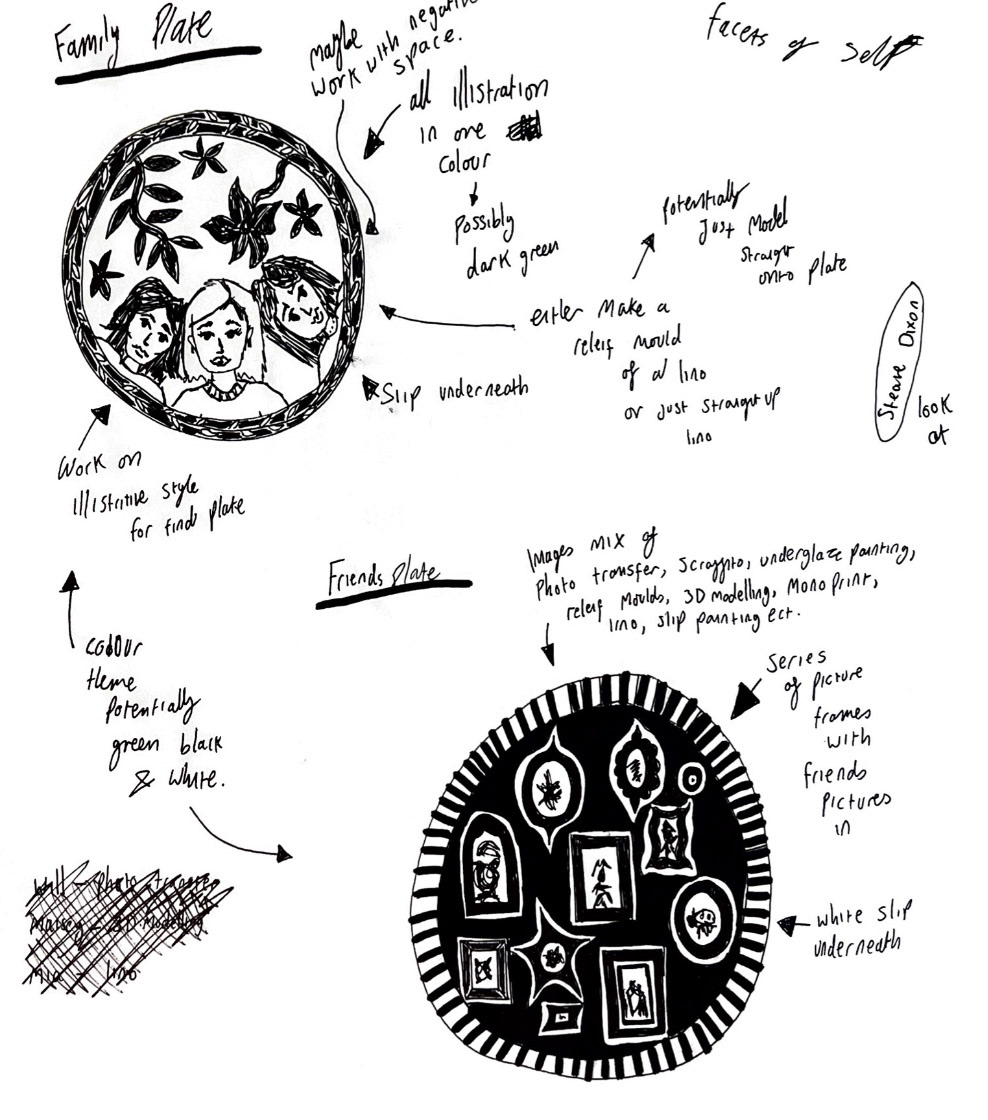 Family Plate
maybe
work with negative
space.
facets of self
all illistration
in one
colour
possibly
dark green
potentially
Just Model
straight
onto plate
either Make a
releif mould
of a lino
or just straight up
lino
Slip underneath
Stease Dixon
look
at
Work on
illistritive style
for final plate
Friends Plate
Images mix of
Photo transfer, Scraffito, underglaze painting,
releif Moulds, 3D modelling, Mono Print,
lino, slip painting ect.
colour
theme
potentially
green black
& white.
Series
of picture
frames
with
friends
pictures
in
photo transfer
3D Modelling
Mia - lino
white slip
underneath